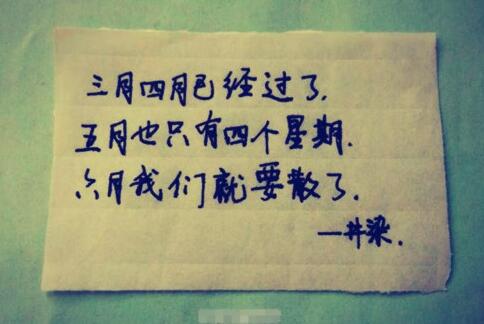 三月四月已经过了.
五月也只有四个星期.
六月我们就要散了.
—井梁.